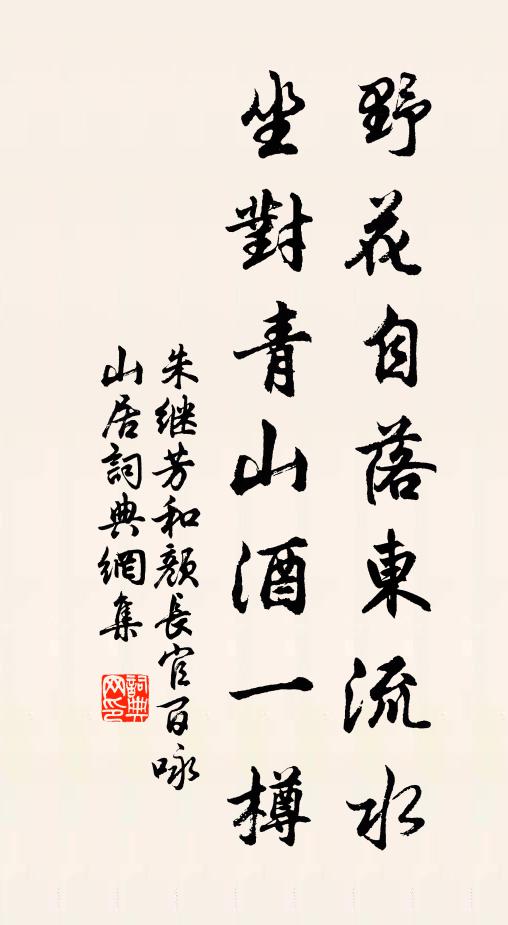 野花自落東流水
坐對青山酒一樽
朱继芳和顏長官百咏
山居詞典網集
詞典网印